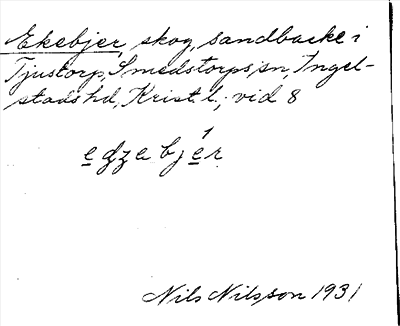 Ekebjer, skog, sandbacke i
Tjustorp, Smedstorps sn, Ingel-
stads hd, Krist. l.; vid 8
1
e gze bjer
Nils Nilsson 1931